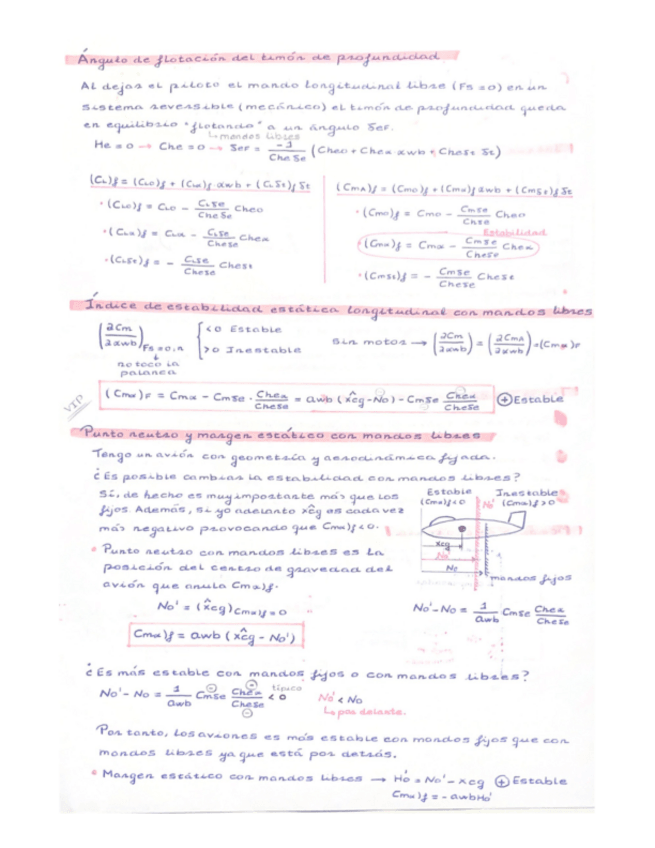 Ángulo de flotación del timón de profundidad
Al dejar el piloto el mando longitudinal libre (Fs=0) en un
sistema reversible (mecánico) el timón de profundidad queda
en equilibrio "flotando" a un ángulo δeF.
↳mandos libres
He = 0 → Che = 0 → δeF = -1/Cheδe (Che0 + Cheα αwb + Cheδt δt)
(CL)f = (CL0)f + (CLα)f αwb + (CLδt)f δt
• (CL0)f = CL0 - CLδe/Cheδe Che0
• (CLα)f = CLα - CLδe/Cheδe Cheα
• (CLδt)f = - CLδe/Cheδe Cheδt
(CmA)f = (Cm0)f + (Cmα)f αwb + (Cmδt)f δt
• (Cm0)f = Cm0 - Cmδe/Chδe Che0
Estabilidad
(Cmα)f = Cmα - Cmδe/Cheδe Cheα
• (Cmδt)f = - Cmδe/Cheδe Cheδt
Índice de estabilidad estática longitudinal con mandos libres
(∂Cm/∂αwb)Fs=0,n { <0 Estable
>0 Inestable
no toco la
palanca
sin motor → (∂Cm/∂αwb) = (∂CmA/∂αwb) = (Cmα)F
VIP
(Cmα)F = Cmα - Cmδe · Cheα/Cheδe = awb (x̂cg - N0) - Cmδe Cheα/Cheδe ⊕ Estable
Punto neutro y margen estático con mandos libres
Tengo un avión con geometría y aerodinámica fijada.
¿Es posible cambiar la estabilidad con mandos libres?
Sí, de hecho es muy importante más que los
fijos. Además, si yo adelanto x̂cg es cada vez
más negativo provocando que Cmα)f<0.
Estable Inestable
(Cmα)f<0 No' (Cmα)f>0
xcg
No'
No
mandos fijos
• Punto neutro con mandos libres es la
posición del centro de gravedad del
avión que anula Cmα)f.
No' = (x̂cg)Cmα)f=0
No' - No = 1/awb Cmδe Cheα/Cheδe
Cmα)f = awb (x̂cg - No')
¿Es más estable con mandos fijos o con mandos libres?
No' - No = 1/awb Cmδe Cheα/Cheδe < 0 típico
No' < No
↳ por delante.
Por tanto, los aviones es más estable con mandos fijos que con
mandos libres ya que está por detrás.
• Margen estático con mandos libres → Ho' = No' - xcg ⊕ Estable
Cmα)f = - awb Ho'